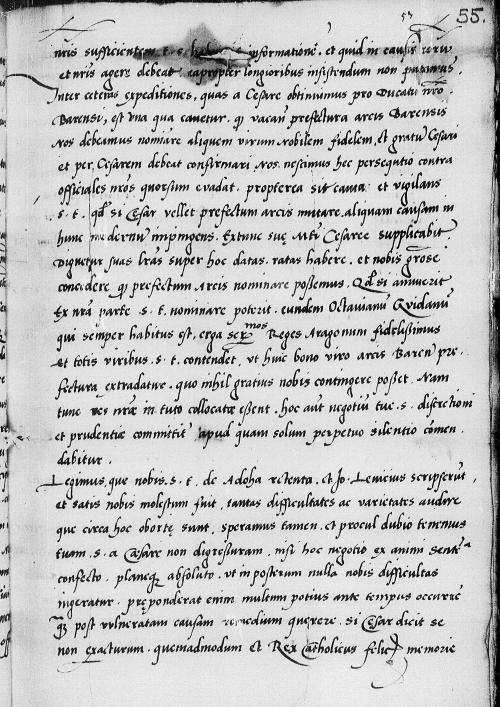 53 55.
nr̃is sufficientem . t . s . informatione᷈ . et quid in causis
et nr̃is agere debeat . eapropter longioribus insistendum non putamus .
Inter ceteras expeditiones, quas a Cesare obtinuimus pro Ducatu nr̃o
Barensi, est una qua cauetur . qp̃ vacan̄ prefectura arcis Barensis
Nos debeamus nominare aliquem virum nobilem fidelem, et gratu᷈ Cesari
et per Cesarem debeat confirmari Nos . nescimus hec persequtio contra
officiales nr̃os quorsum euadat . propterea sit cauta et vigilans
s . t . qd̃ si Cesar vellet prefectum arcis mutare . aliquam causam in
hunc modernu᷈ impingens . Extunc suę M.ti Cesaree supplicabit
Dignetur suas lr̃as super hoc datas . ratas habere . et nobis
concedere qp̃ prefectum Arcis nominare possemus . Qd̃ si annuerit
Ex nr̃a parte s . t . nominare poterit . eundem Octauianu᷈ Gvidanu᷈
qui semper habitus est . erga ser.mos Reges Aragonum fidelissimus
Et totis viribus . s . t . contendet . vt huic bono viro arcis Baren̄ pre-
fectura extradatur . quo nihil gratius nobis contingere posset . Nam
tunc res nr̃ae in tuto collocatae essent . hoc aut̃ negotiu᷈ tue . s . discretioni
et prudentiae committit̃ apud quam solum perpetuo silentio co᷈men-
dabitur .
Legimus, que nobis . s . t . de Adoha retenta . et Jo . Lenicius scripserut̃,
et satis nobis molestum fuit . tantas difficultates ac varietates audire
que circa hoc obortę sunt . speramus tamen . et procul dubio tenemus
tuam . s . a Caesare non digressuram . nisi hoc negotio ex animi sente᷈tia
confecto . planeq̨ absoluto . vt in posterum nulla nobis difficultas
ingeratur . pręponderat enim multum potius ante tempus occurre᷈
q̃ post vulneratam causam remedium querere . si Cesar dicit se
non exacturum . quemadmodum et Rex Catholicus felicis memorie